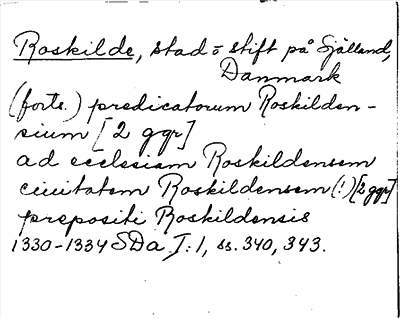 Roskilde, stad o stift på Själland,
Danmark
(forts.) predicatorum Roskilden-
sium [2 ggr]
ad ecclesiam Roskildensem
ciuitatem Roskildensem (!) [2 ggr]
prepositi Roskildensis
1330-1334 SDa I: 1, ss. 340, 343.